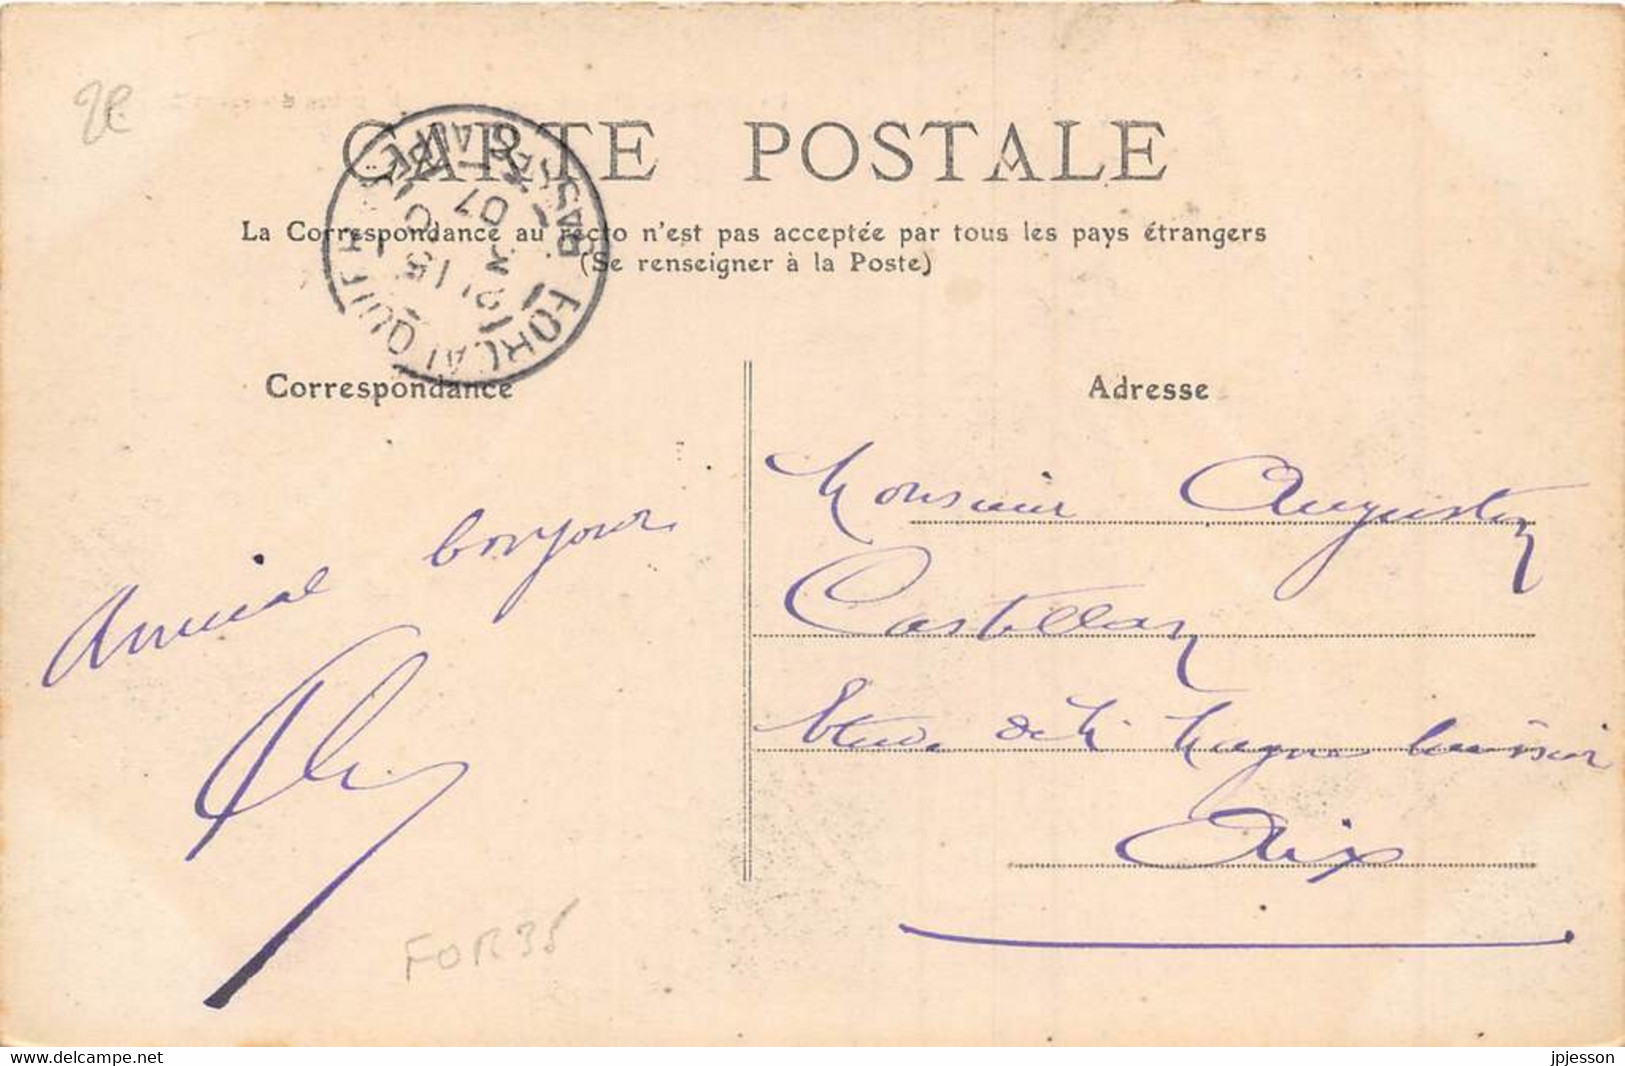 2€
CARTE POSTALE
La Correspondance au recto n'est pas acceptée par tous les pays étrangers
(Se renseigner à la Poste)
FORCALQUIER
BASSES-ALPES
15
21
07
Correspondance
Adresse
Amical bonjour
Monsieur Augustin
Castellan
Etude de Me Magne huissier
Aix
FOR 35
www.delcampe.net
jpjesson